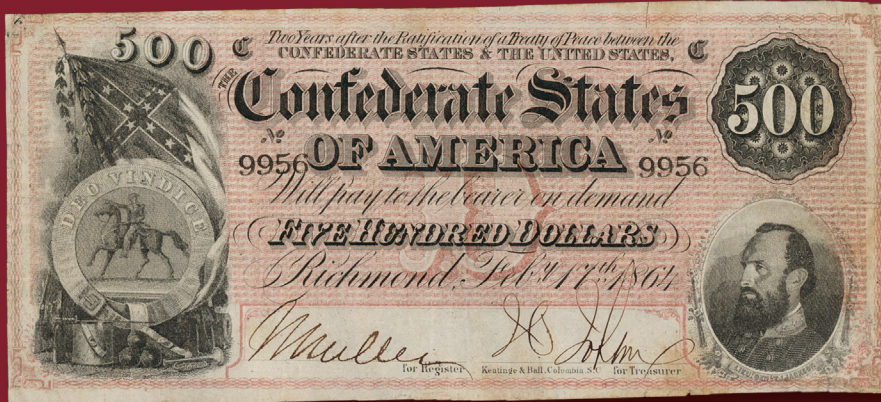 500 C Two Years after the Ratification of a Treaty of Peace between the C
CONFEDERATE STATES & THE UNITED STATES,
THE
Confederate States
500
No No
9956 OF AMERICA 9956
DEO VINDICE
Will pay to the bearer on demand
FIVE HUNDRED DOLLARS
Richmond, Feby. 17th 1864
for Register Keatinge & Ball, Columbia, S.C. for Treasurer